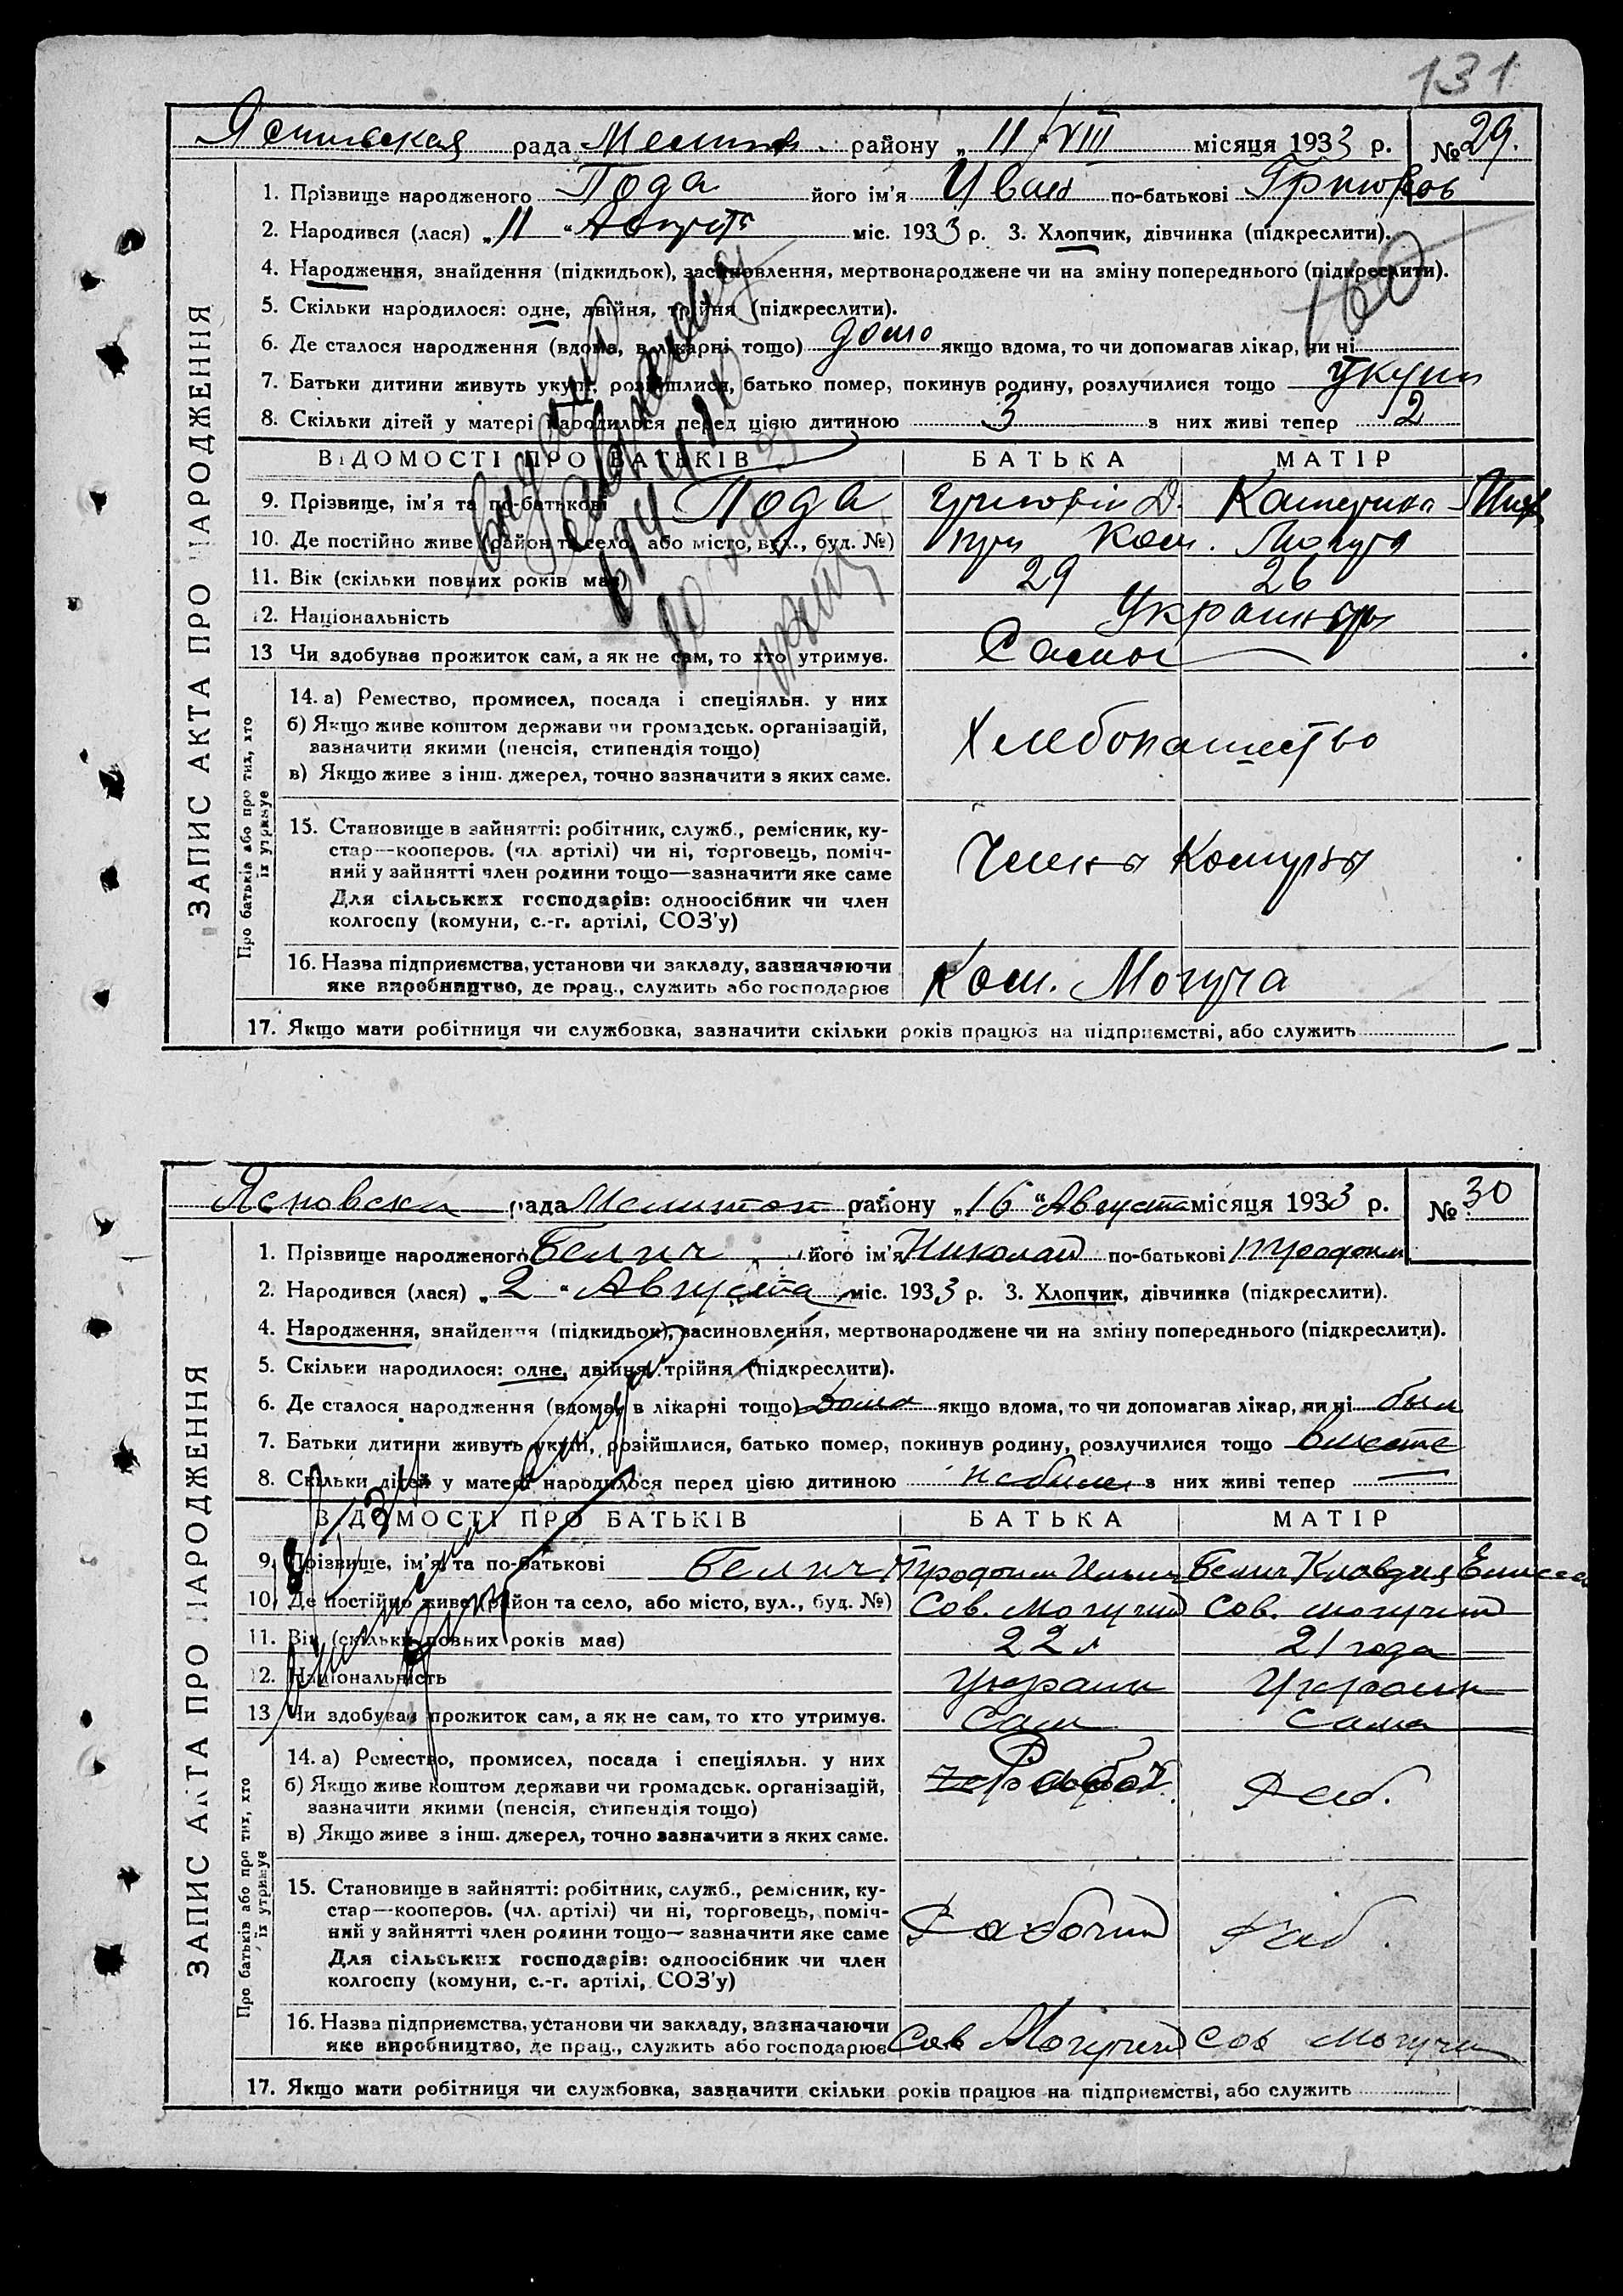 131
рада Мелитоп. району „ 11 " VIII місяця 1933 р. № 29.
ЗАПИС АКТА ПРО НАРОДЖЕННЯ
1. Прізвище народженого Пода його ім'я Иван по-батькові
2. Народився (лася) „ 11 " Августа міс. 1933 р. 3. Хлопчик, дівчинка (підкреслити).
4. Народження, знайдення (підкидьок), засиновлення, мертвонароджене чи на зміну попереднього (підкреслити).
160
5. Скільки народилося: одне, двійня, трійня (підкреслити).
6. Де сталося народження (вдома, в лікарні тощо) дома якщо вдома, то чи допомагав лікар, чи ні
7. Батьки дитини живуть укупі, розійшлися, батько помер, покинув родину, розлучилися тощо укупи
8. Скільки дітей у матері народилося перед цією дитиною 3 з них живі тепер 2
ВІДОМОСТІ ПРО БАТЬКІВ БАТЬКА МАТІР
9. Прізвище, ім'я та по-батькові Пода Григорій Д. Катерина
10. Де постійно живе (район та село, або місто, вул., буд. №) при Ком. Могуча
11. Вік (скільки повних років має) 29 26
12. Національність Украинцы
13 Чи здобував прожиток сам, а як не сам, то хто утримує. Самы
Про батьків або про тих, хто їх утримує
14. а) Ремество, промисел, посада і спеціяльн. у них
б) Якщо живе коштом держави чи громадськ. організацій,
зазначити якими (пенсія, стипендія тощо)
в) Якщо живе з інш. джерел, точно зазначити з яких саме.
Хлебопашество
15. Становище в зайнятті: робітник, служб., ремісник, ку-
стар—кооперов. (чл. артілі) чи ні, торговець, поміч-
ний у зайнятті член родини тощо—зазначити яке саме
Для сільських господарів: одноосібник чи член
колгоспу (комуни, с.-г. артілі, СОЗ'у)
Члены Комуны
16. Назва підприємства, установи чи закладу, зазначаючи
яке виробництво, де прац., служить або господарює
Ком. Могуча
17. Якщо мати робітниця чи службовка, зазначити скільки років працює на підприємстві, або служить
Ясновска рада Мелитоп району „ 16 " Августа місяця 1933 р. № 30
ЗАПИС АКТА ПРО НАРОДЖЕННЯ
1. Прізвище народженого Белич його ім'я Николай по-батькові
2. Народився (лася) „ 2 " Августа міс. 1933 р. 3. Хлопчик, дівчинка (підкреслити).
4. Народження, знайдення (підкидьок), засиновлення, мертвонароджене чи на зміну попереднього (підкреслити).
5. Скільки народилося: одне, двійня, трійня (підкреслити).
6. Де сталося народження (вдома, в лікарні тощо) Дома якщо вдома, то чи допомагав лікар, чи ні был
7. Батьки дитини живуть укупі, розійшлися, батько помер, покинув родину, розлучилися тощо вместе
8. Скільки дітей у матері народилося перед цією дитиною з них живі тепер —
ВІДОМОСТІ ПРО БАТЬКІВ БАТЬКА МАТІР
9. Прізвище, ім'я та по-батькові Белич Белич Клавдия
10. Де постійно живе (район та село, або місто, вул., буд. №) Сов. Могучий Сов. Могучий
11. Вік (скільки повних років має) 22 л 21 года
12. Національність Украин Украин
13 Чи здобував прожиток сам, а як не сам, то хто утримує. Сам Сама
Про батьків або про тих, хто їх утримує
14. а) Ремество, промисел, посада і спеціяльн. у них
б) Якщо живе коштом держави чи громадськ. організацій,
зазначити якими (пенсія, стипендія тощо)
в) Якщо живе з інш. джерел, точно зазначити з яких саме.
Работ. Раб.
15. Становище в зайнятті: робітник, служб., ремісник, ку-
стар—кооперов. (чл. артілі) чи ні, торговець, поміч-
ний у зайнятті член родини тощо—зазначити яке саме
Для сільських господарів: одноосібник чи член
колгоспу (комуни, с.-г. артілі, СОЗ'у)
Рабочий Раб.
16. Назва підприємства, установи чи закладу, зазначаючи
яке виробництво, де прац., служить або господарює
Сов Могучий Сов Могучи
17. Якщо мати робітниця чи службовка, зазначити скільки років працює на підприємстві, або служить